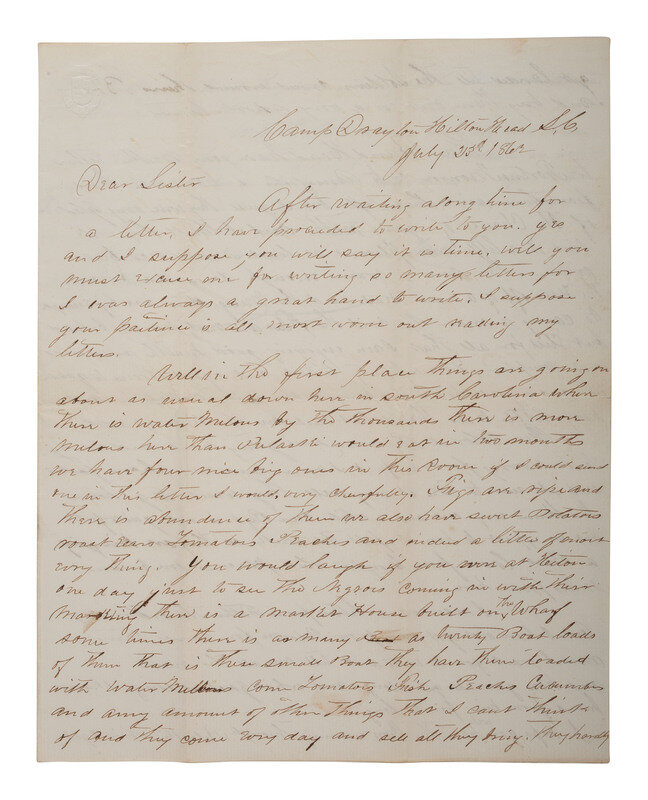 Camp Drayton Hilton Head S.C.
July 25th 1862
Dear Sister
After waiting along time for
a letter, I have proceeded to write to you. yes
and I suppose you will say it is time. well you
must excuse me for writing so many letters for
I was always a great hand to write. I suppose
your patience is all most worn out reading my
letters.
Well in the first place things are going on
about as usual down here in south Carolina where
there is water Melons by the thousands there is more
Melons here than Pulaski would eat in two months
we have four nice big ones in this Room if I could send
one in this letter I would, very cheerfuley. Figs are ripe and
there is abundence of them we also have sweet Potatoes
roast Ears Tomatoes Peaches and indeed a little of most
evry thing. You would laugh if you were at Hilton
one day just to see the Negroes coming in with their
Marketing there is a market House built on the Wharf
some times there is as many as twenty Boat loads
of them that is these small Boat they have them loaded
with water Mellons corn Tomatoes Fish Peaches Cucumbers
and any amount of other things that I cant think
of and they come evry day and sell all they bring. they hardly